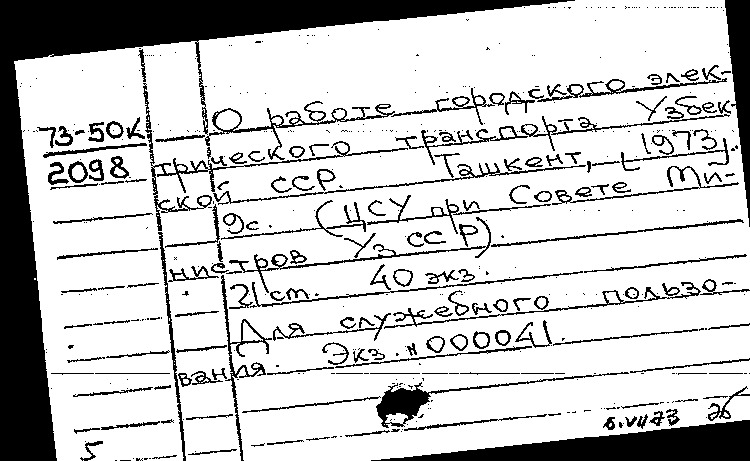 О работе городского элек-
73-50К
2098
трического транспорта Узбек-
ской ССР. Ташкент, [1973].
9с. (ЦСУ при Совете Ми-
нистров УзССР).
21 см. 40 экз.
Для служебного пользо-
вания. Экз. н 000041.
5